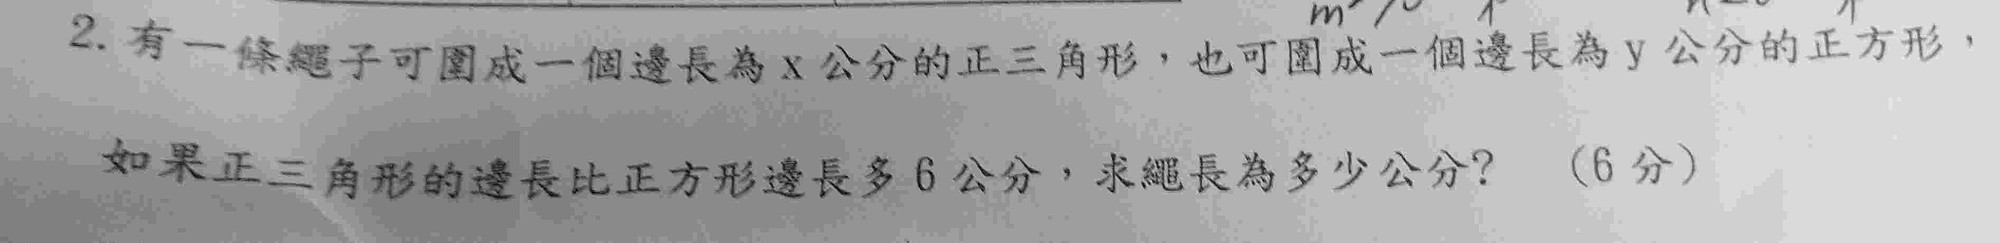 2. 有一條繩子可圍成一個邊長為 x 公分的正三角形，也可圍成一個邊長為 y 公分的正方形，
如果正三角形的邊長比正方形邊長多 6 公分，求繩長為多少公分? （6 分）